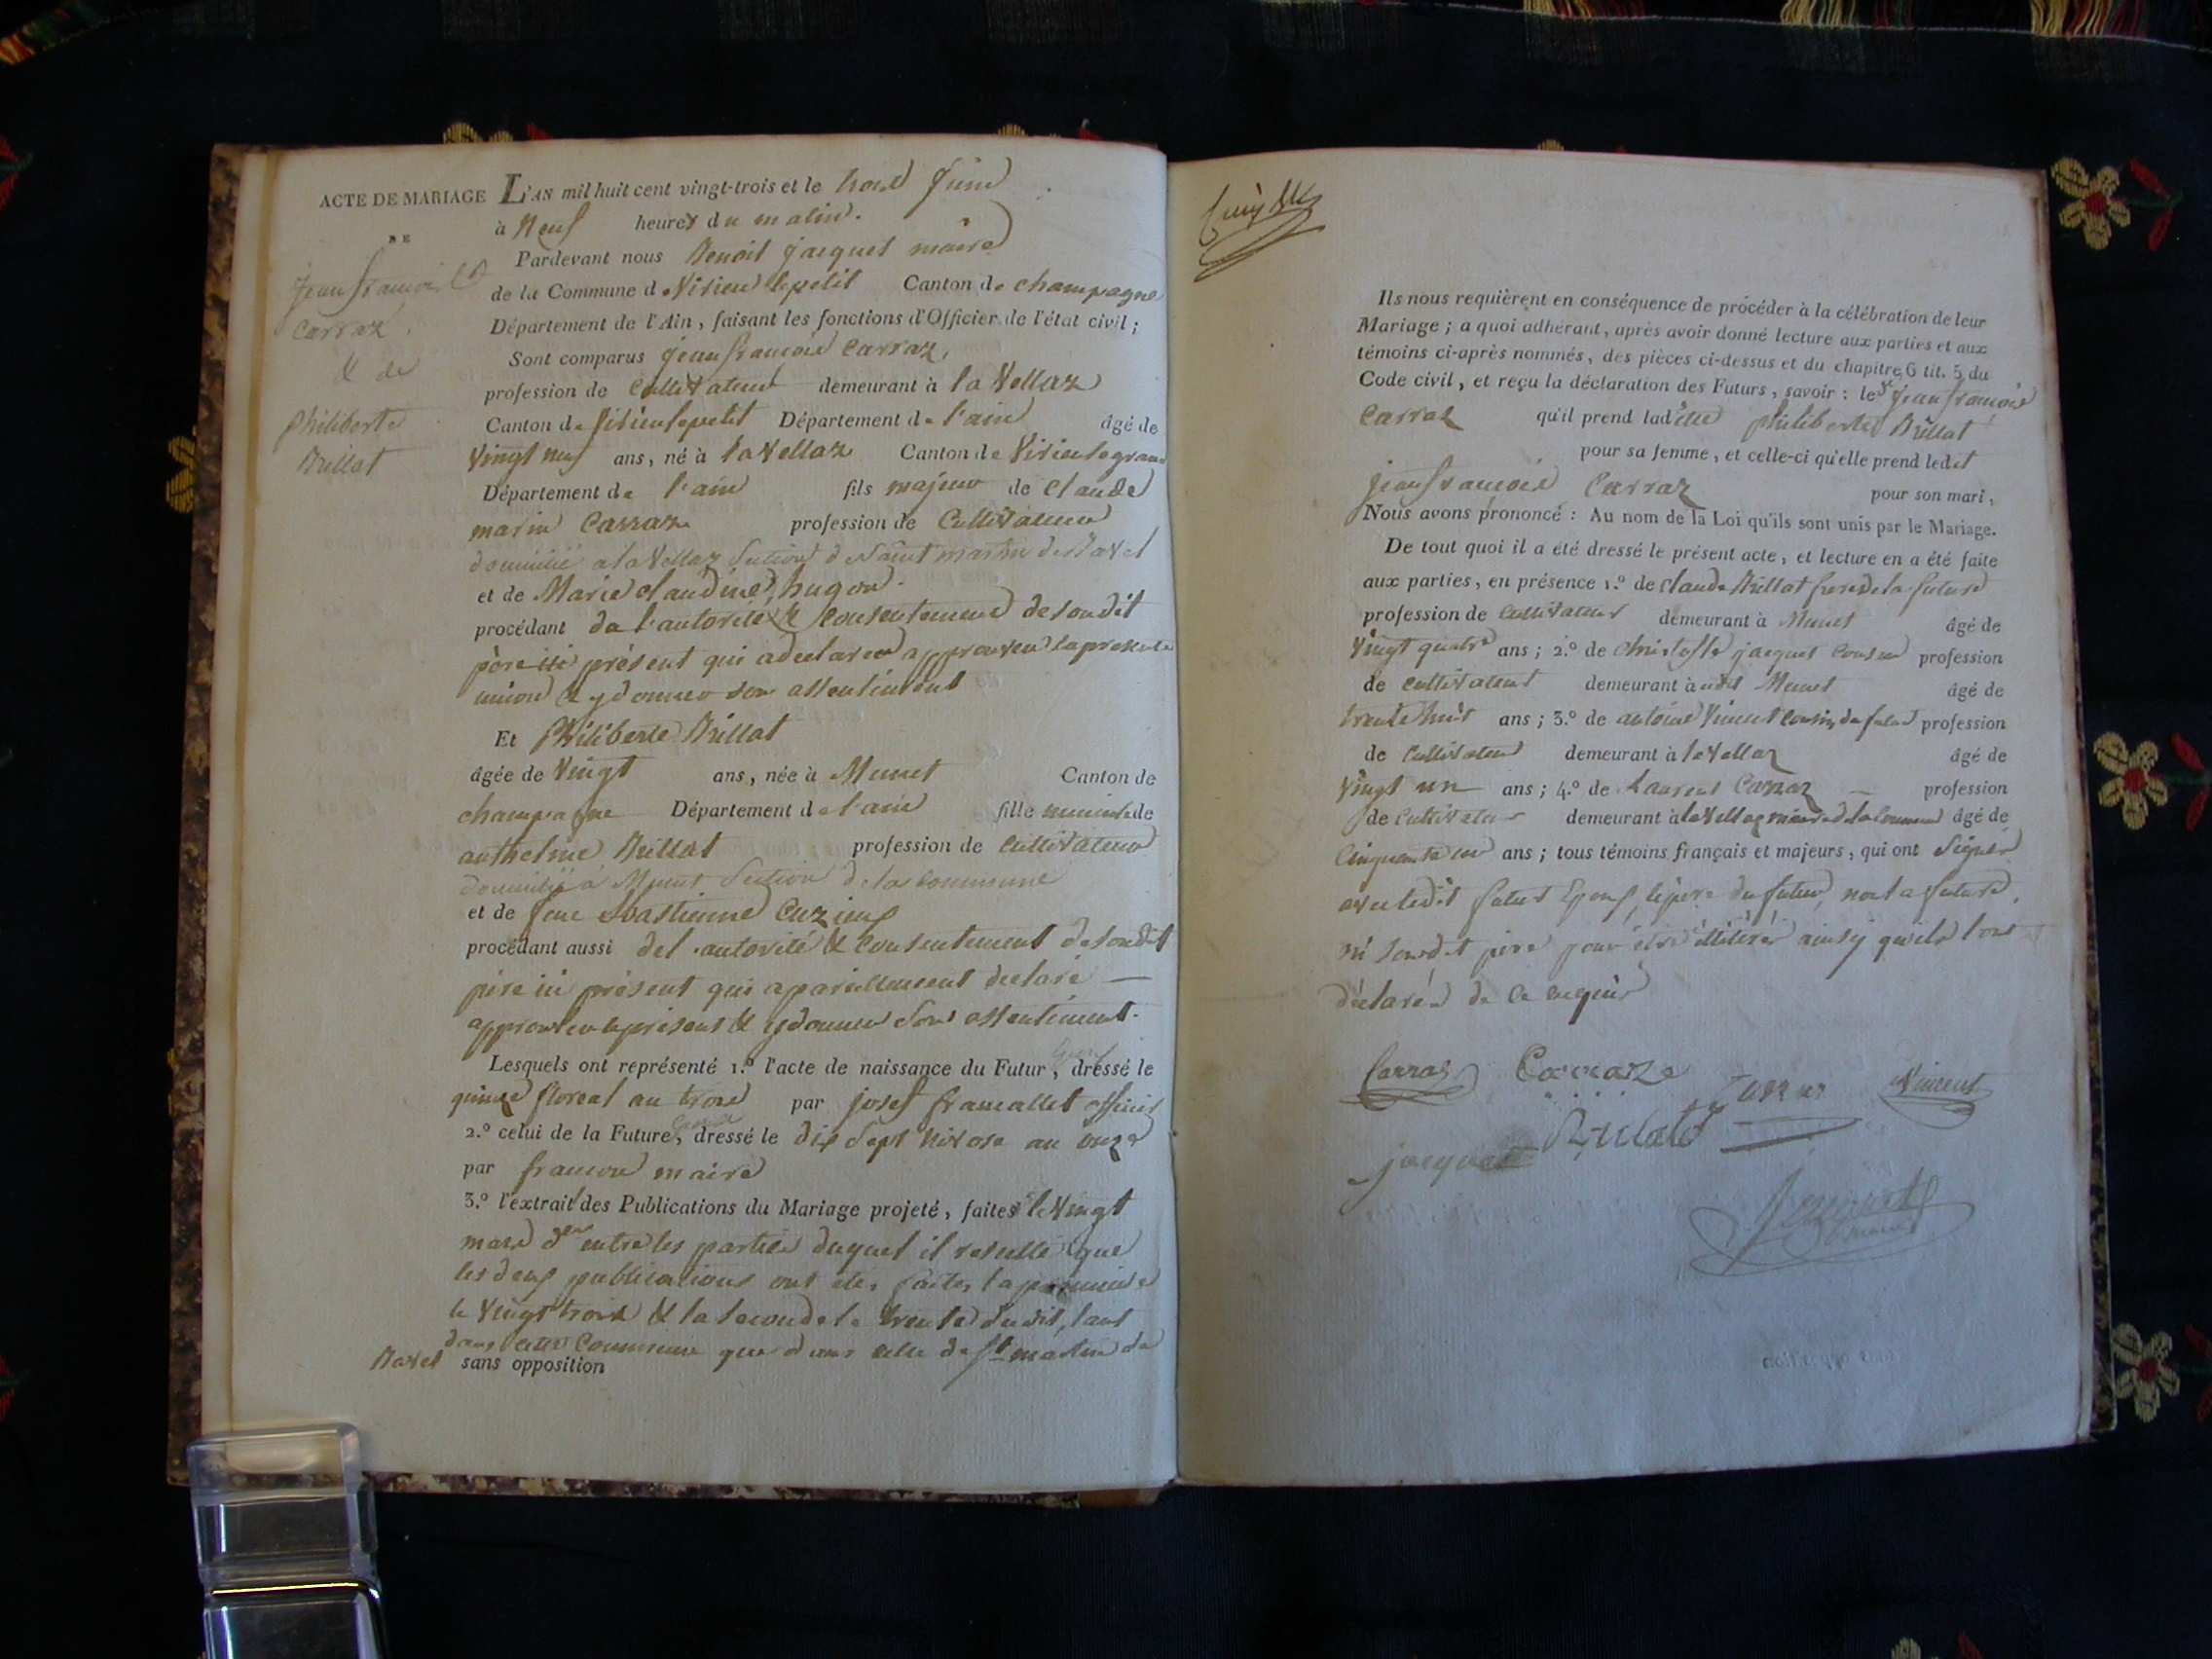 ACTE DE MARIAGE
DE
jean francois
Carraz
& de
Philiberte
Brillat
L'AN mil huit cent vingt-trois et le trois Juin
à Neuf heures du matin.
Pardevant nous Benoit jacquet maire
de la Commune de Virieu le petit Canton de champagne
Département de l'Ain, faisant les fonctions d'Officier de l'état civil;
Sont comparus jean francois Carraz,
profession de Cultivateur demeurant à la Vellaz
Canton de Virieu le petit Département de l'ain âgé de
Vingt neuf ans, né à la Vellaz Canton de Virieu le grand
Département de l'ain fils majeur de Claude
marin Carraz profession de Cultivateur
domicilié a la Vellaz Section de Saint martin de Bavel
et de Marie claudine hugon.
procédant de l'autorité & Consentement de son dit
père ici présent qui a declarer approuver la presente
union & y donner son assentiment
Et Philiberte Brillat
âgée de Vingt ans, née à Munet Canton de
champagne Département de l'ain fille mineure de
anthelme Brillat profession de Cultivateur
domicilié a Munet Section de la Commune
et de feue Sbastienne Cuzieux
procédant aussi de l'autorité & Consentement de son dit
père ici présent qui a pareillement declaré
approuver le présent & y donner Son assentiment.
Lesquels ont représenté 1.º l'acte de naissance du Futur, dressé le
quinze floreal an trois par josef francallet officier
2.º celui de la Future, dressé le dix Sept Nivose an onze
par francon maire
3.º l'extrait des Publications du Mariage projeté, faites le Vingt
mars der entre les parties duquel il resulte que
les deux publications ont étés faites la premiere
le Vingt trois & la Seconde le trente du dit, tant
dans cette Commune que dans celle de St martin de
Bavel sans opposition
Ils nous requièrent en conséquence de procéder à la célébration de leur
Mariage; a quoi adhérant, après avoir donné lecture aux parties et aux
témoins ci-après nommés, des pièces ci-dessus et du chapitre 6 tit. 5 du
Code civil, et reçu la déclaration des Futurs, savoir: le jean francois
Carraz qu'il prend ladite philiberte Brillat
pour sa femme, et celle-ci qu'elle prend ledit
jean francois Carraz pour son mari,
Nous avons prononcé: Au nom de la Loi qu'ils sont unis par le Mariage.
De tout quoi il a été dressé le présent acte, et lecture en a été faite
aux parties, en présence 1.º de claude Brillat frere de la future
profession de cultivateur demeurant à Munet âgé de
Vingt quatre ans; 2.º de christofle jacquet Cousin profession
de Cultivateur demeurant à udit Munet âgé de
trente huit ans; 3.º de antoine Vincent Cousin du futur profession
de Cultivateur demeurant à la Vellaz âgé de
Vingt un ans; 4.º de Laurent Carraz profession
de Cultivateur demeurant à la Vellaz âgé de
Cinquante un ans; tous témoins français et majeurs, qui ont Signés
avec ledit futur Epoux, le pere du futur, non la future,
ni Son dit père pour être illitérés ainsy qu'ils l'ont
déclarés de ce enquis
Carraz Carraz Vincent
Brillat
jacquet